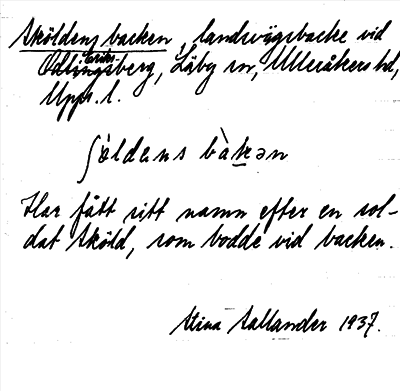 Sköldens backen, landsvägsbacke vid
Eriksberg, Läby sn, Ulleråkers hd,
Upps. l.
ʃöldens bàkən
Har fått sitt namn efter en sol-
dat Sköld, som bodde vid backen.
Stina Sallander 1937.